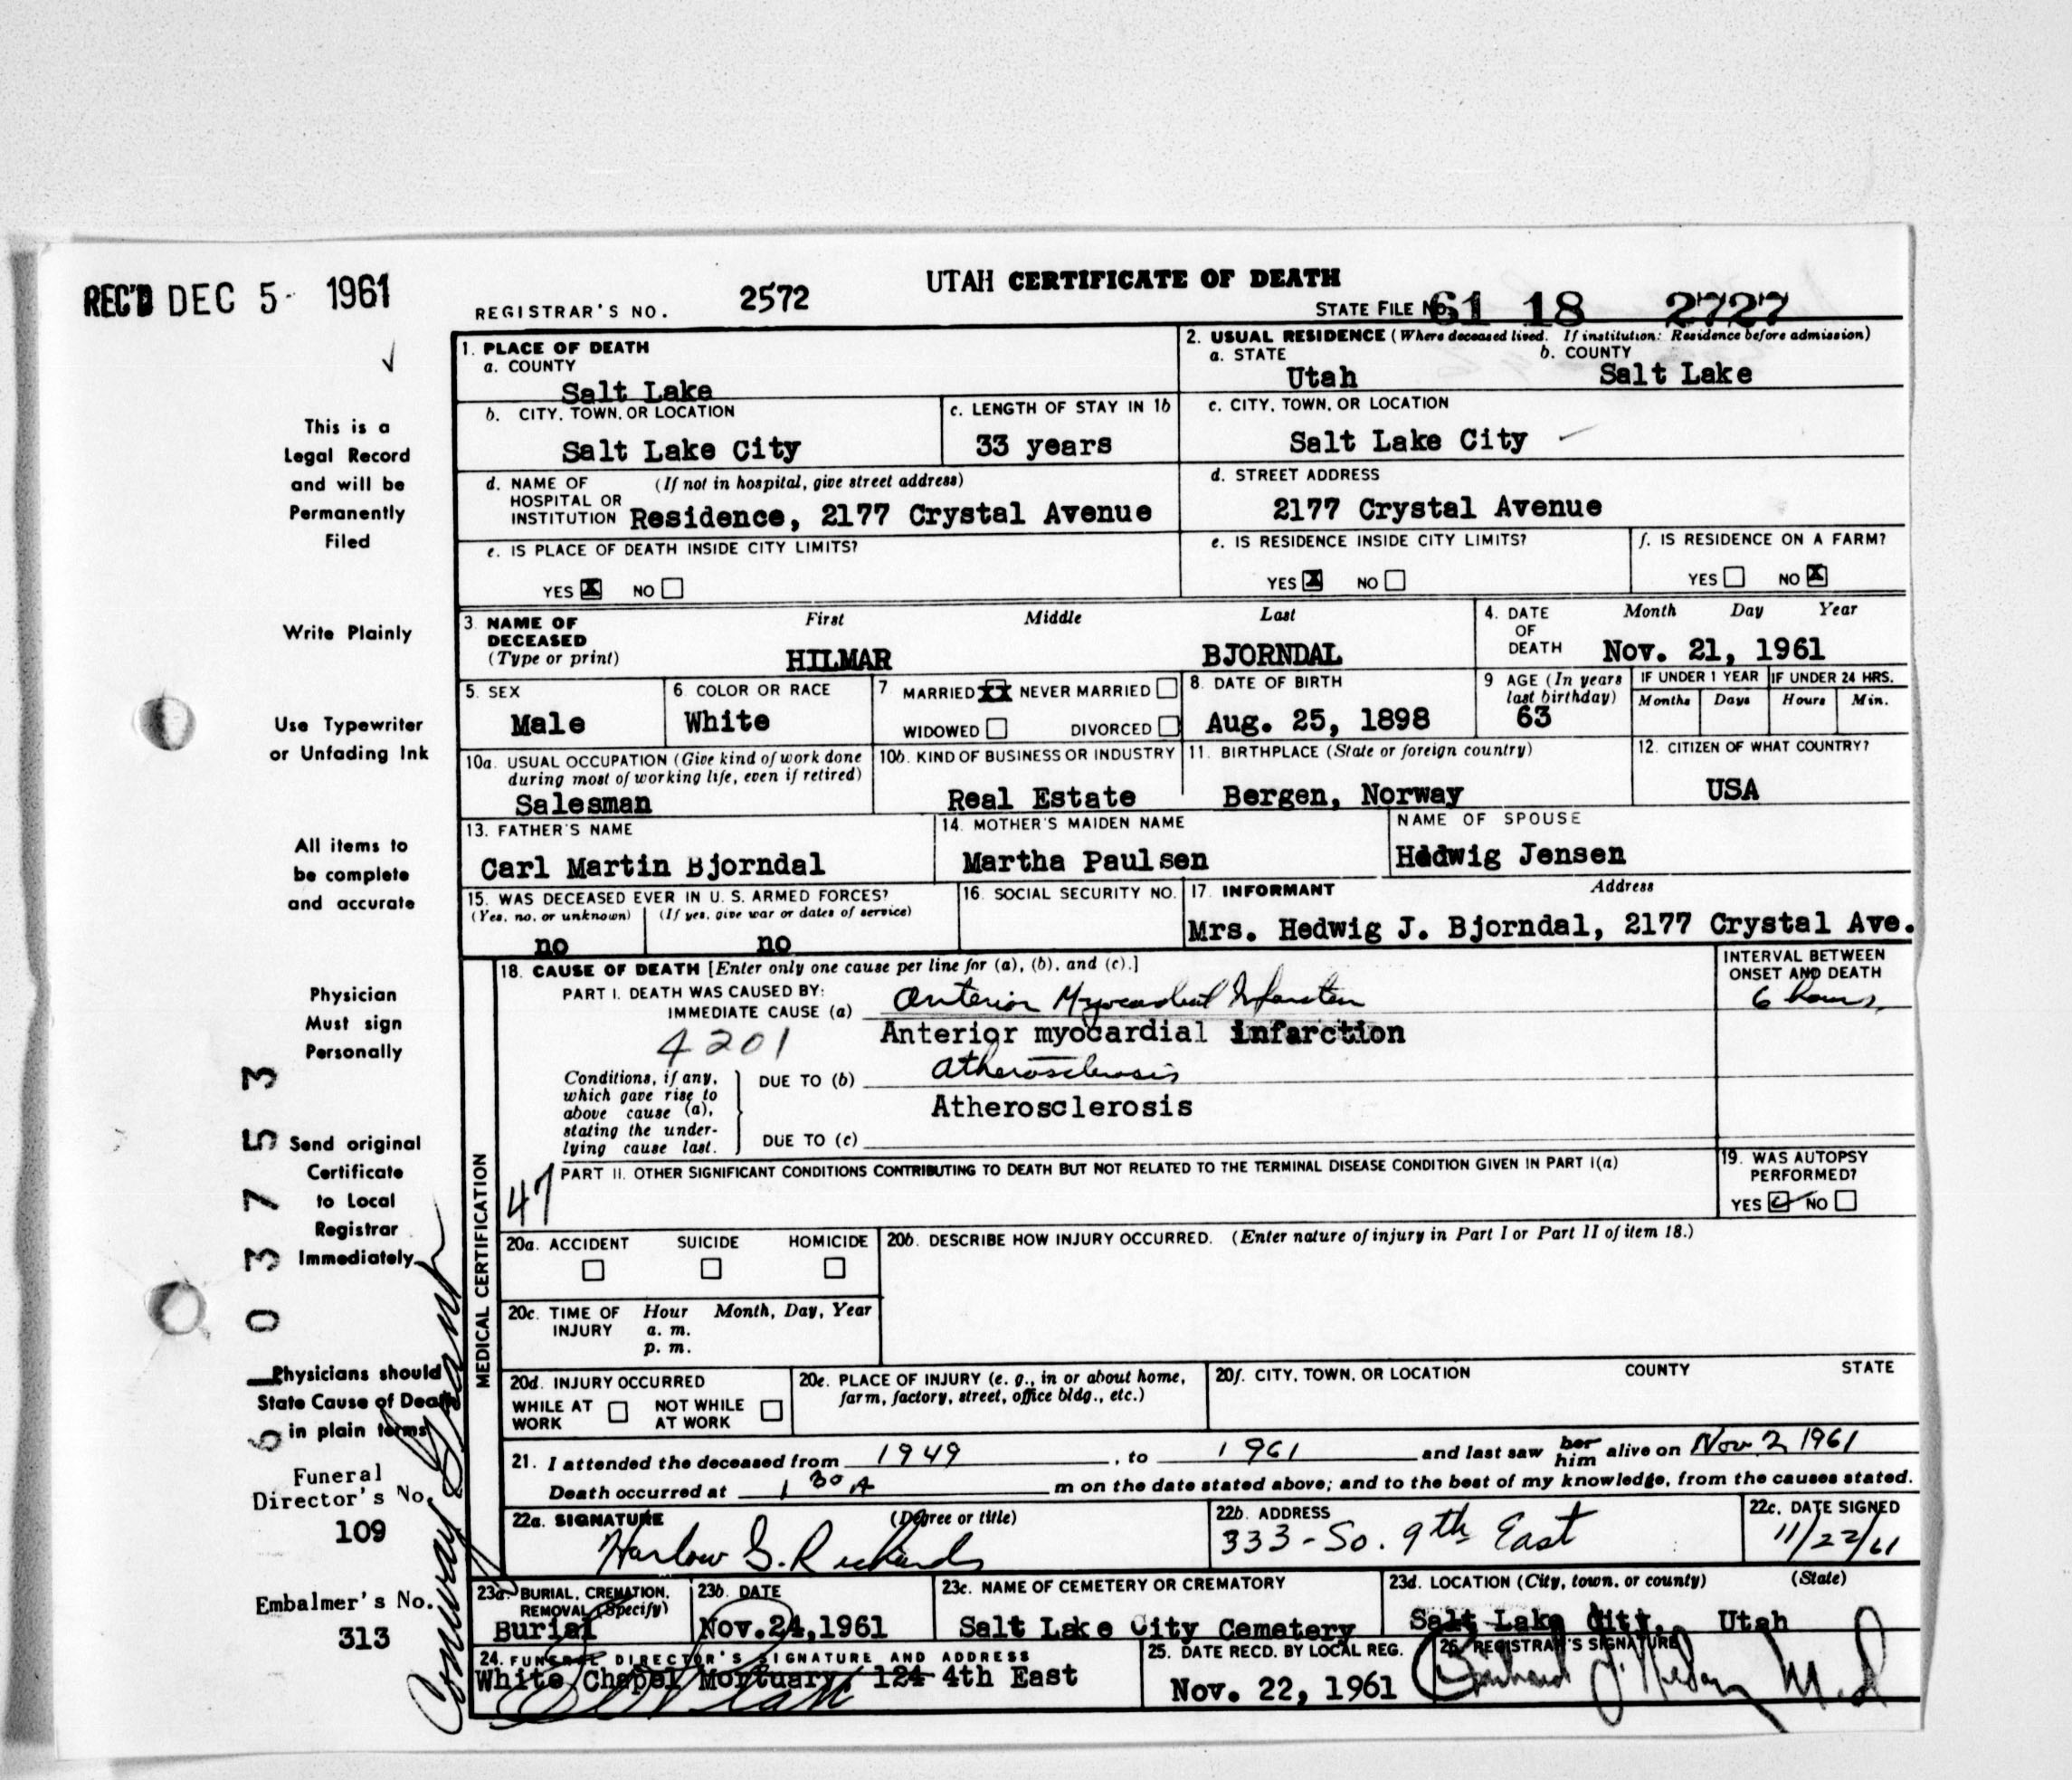 REC'D DEC 5 1961
UTAH CERTIFICATE OF DEATH
REGISTRAR'S NO. 2572
STATE FILE No. 61 18 2727
✓
This is a
Legal Record
and will be
Permanently
Filed
Write Plainly
Use Typewriter
or Unfading Ink
All items to
be complete
and accurate
Physician
Must sign
Personally
Send original
Certificate
to Local
Registrar
Immediately
Physicians should
State Cause of Death
in plain terms
Funeral
Director's No.
109
Embalmer's No.
313
61037573
1. PLACE OF DEATH
a. COUNTY
Salt Lake
b. CITY, TOWN, OR LOCATION
Salt Lake City
c. LENGTH OF STAY IN 1b
33 years
d. NAME OF (If not in hospital, give street address)
HOSPITAL OR
INSTITUTION Residence, 2177 Crystal Avenue
e. IS PLACE OF DEATH INSIDE CITY LIMITS?
YES X NO
2. USUAL RESIDENCE (Where deceased lived. If institution: Residence before admission)
a. STATE b. COUNTY
Utah Salt Lake
c. CITY, TOWN, OR LOCATION
Salt Lake City
d. STREET ADDRESS
2177 Crystal Avenue
e. IS RESIDENCE INSIDE CITY LIMITS?
YES X NO
f. IS RESIDENCE ON A FARM?
YES NO X
3. NAME OF DECEASED (Type or print)
First Middle Last
HILMAR BJORNDAL
4. DATE OF DEATH
Month Day Year
Nov. 21, 1961
5. SEX
Male
6. COLOR OR RACE
White
7 MARRIED XX NEVER MARRIED
WIDOWED DIVORCED
8. DATE OF BIRTH
Aug. 25, 1898
9 AGE (In years
last birthday)
63
IF UNDER 1 YEAR IF UNDER 24 HRS.
Months Days Hours Min.
10a. USUAL OCCUPATION (Give kind of work done
during most of working life, even if retired)
Salesman
10b. KIND OF BUSINESS OR INDUSTRY
Real Estate
11. BIRTHPLACE (State or foreign country)
Bergen, Norway
12. CITIZEN OF WHAT COUNTRY?
USA
13. FATHER'S NAME
Carl Martin Bjorndal
14. MOTHER'S MAIDEN NAME
Martha Paulsen
NAME OF SPOUSE
Hedwig Jensen
15. WAS DECEASED EVER IN U. S. ARMED FORCES?
(Yes, no, or unknown) (If yes, give war or dates of service)
no no
16. SOCIAL SECURITY NO.
17. INFORMANT Address
Mrs. Hedwig J. Bjorndal, 2177 Crystal Ave.
MEDICAL CERTIFICATION
18. CAUSE OF DEATH [Enter only one cause per line for (a), (b), and (c).]
INTERVAL BETWEEN
ONSET AND DEATH
PART I. DEATH WAS CAUSED BY:
IMMEDIATE CAUSE (a) Anterior Myocardial Infarction
6 hours
Anterior myocardial infarction
4201
Conditions, if any,
which gave rise to
above cause (a),
stating the under-
lying cause last.
DUE TO (b) Atherosclerosis
Atherosclerosis
DUE TO (c)
47
PART II. OTHER SIGNIFICANT CONDITIONS CONTRIBUTING TO DEATH BUT NOT RELATED TO THE TERMINAL DISEASE CONDITION GIVEN IN PART I(a)
19. WAS AUTOPSY
PERFORMED?
YES ✓ NO
20a. ACCIDENT SUICIDE HOMICIDE
20b. DESCRIBE HOW INJURY OCCURRED. (Enter nature of injury in Part I or Part II of item 18.)
20c. TIME OF INJURY
Hour Month, Day, Year
a. m.
p. m.
20d. INJURY OCCURRED
WHILE AT WORK NOT WHILE AT WORK
20e. PLACE OF INJURY (e. g., in or about home,
farm, factory, street, office bldg., etc.)
20f. CITY, TOWN, OR LOCATION COUNTY STATE
21. I attended the deceased from 1949, to 1961 and last saw her him alive on Nov 2 1961
Death occurred at 1 30 A m on the date stated above; and to the best of my knowledge, from the causes stated.
22a. SIGNATURE (Degree or title)
Harlow G. Richards
22b. ADDRESS
333 - So. 9th East
22c. DATE SIGNED
11/22/61
23a. BURIAL, CREMATION,
REMOVAL (Specify)
Burial
23b. DATE
Nov.24,1961
23c. NAME OF CEMETERY OR CREMATORY
Salt Lake City Cemetery
23d. LOCATION (City, town, or county) (State)
Salt Lake City, Utah
24. FUNERAL DIRECTOR'S SIGNATURE AND ADDRESS
White Chapel Mortuary, 124 4th East
25. DATE RECD. BY LOCAL REG.
Nov. 22, 1961
26. REGISTRAR'S SIGNATURE